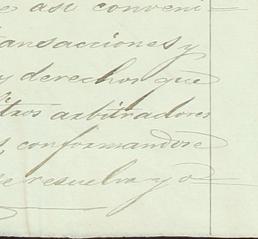 e así conveni-
ansacciones y
y derechos que
tros arbitradores
conformandose
se resuelva y o